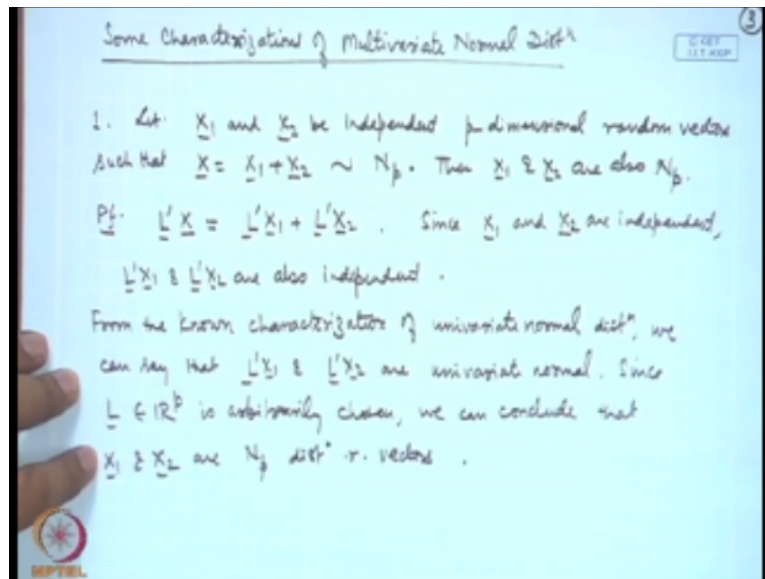 3
Some Characterizations of Multivariate Normal Distⁿ
© CET
I.I.T. KGP
1. Let X₁ and X₂ be independent p-dimensional random vectors
such that X = X₁ + X₂ ~ Nₚ. Then X₁ & X₂ are also Nₚ.
Pf. L'X = L'X₁ + L'X₂. Since X₁ and X₂ are independent,
L'X₁ & L'X₂ are also independent.
From the known characterization of univariate normal distⁿ, we
can say that L'X₁ & L'X₂ are univariate normal. Since
L ∈ ℝᵖ is arbitrarily chosen, we can conclude that
X₁ & X₂ are Nₚ distⁿ r. vectors.
NPTEL